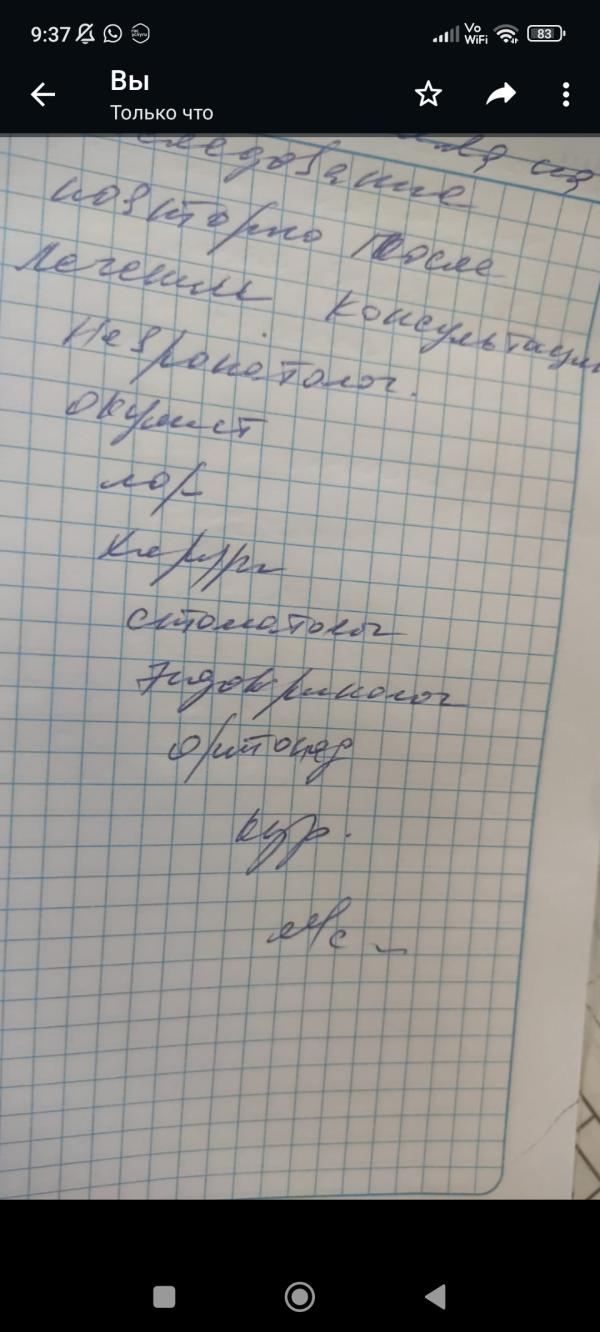 9:37
Vo
WiFi
83
Вы
Только что
следование
повторно после
Лечения консультации
Невропатолог.
окулист
лор
хирург
стоматолог
Эндокринолог
ортопед